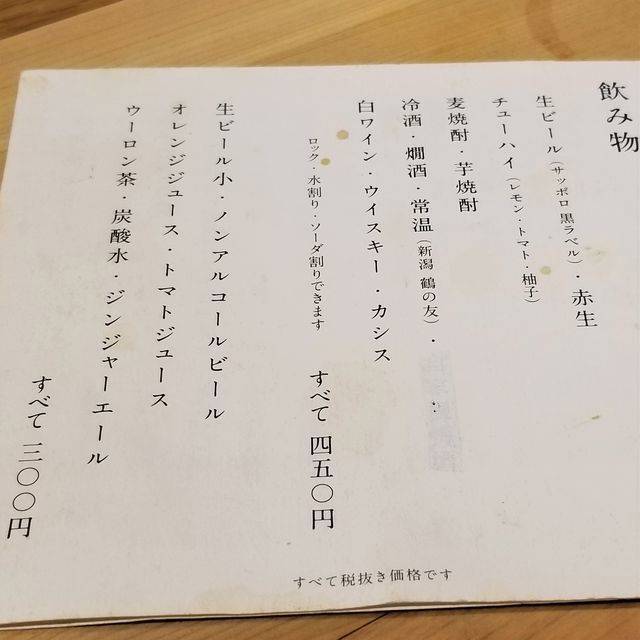 飲み物
生ビール（サッポロ 黒ラベル）・赤生
チューハイ（レモン・トマト・柚子）
麦焼酎・芋焼酎
冷酒・燗酒・常温（新潟 鶴の友）・
白ワイン・ウイスキー・カシス
ロック・水割り・ソーダ割りできます
すべて 四五〇円
生ビール小・ノンアルコールビール
オレンジジュース・トマトジュース
ウーロン茶・炭酸水・ジンジャーエール
すべて 三〇〇円
すべて税抜き価格です